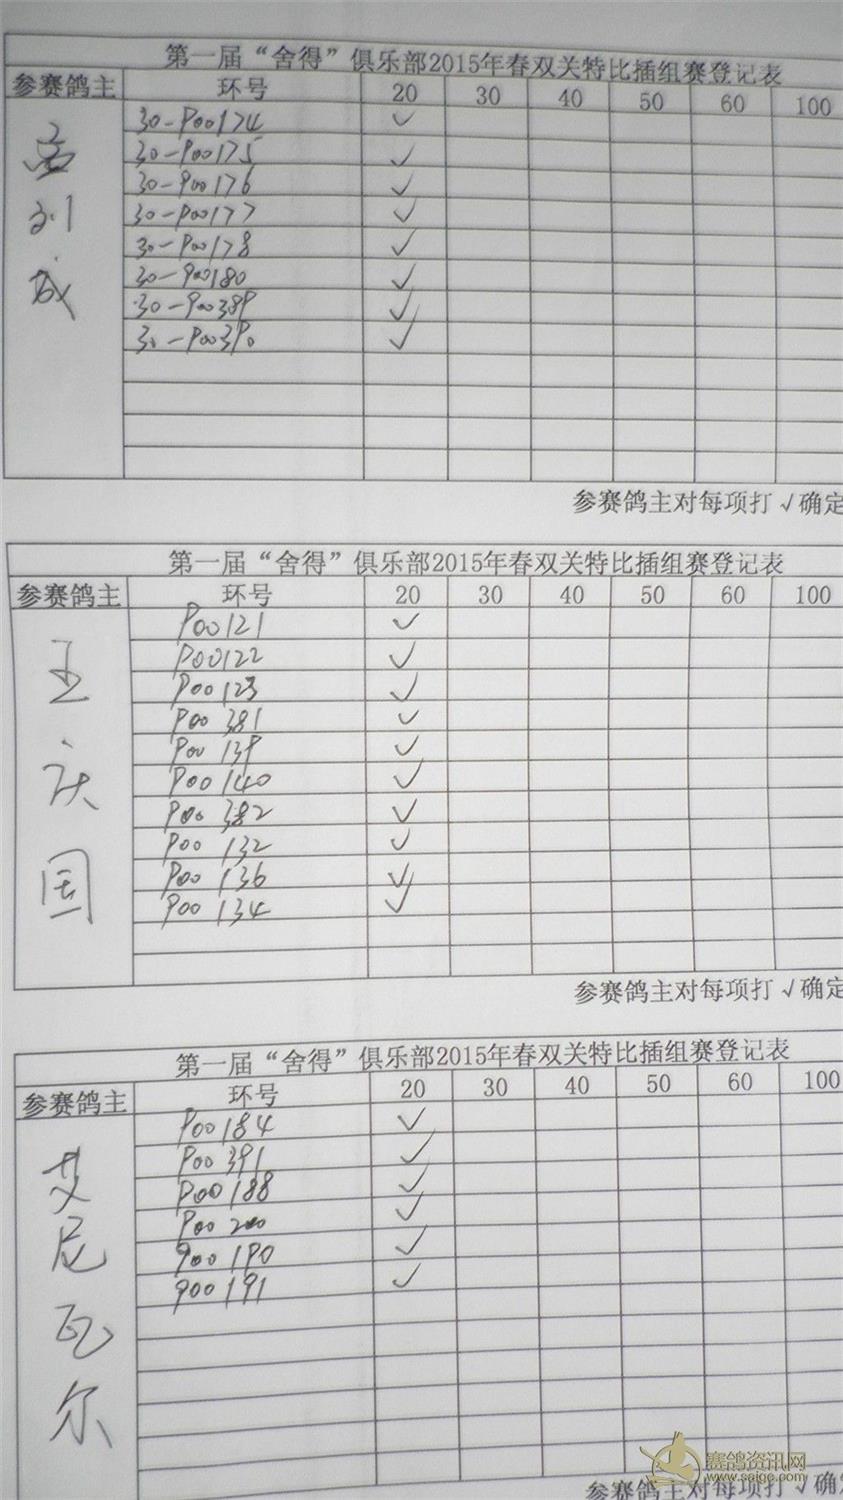 第一届“舍得”俱乐部2015年春双关特比插组赛登记表
参赛鸽主 环号 20 30 40 50 60 100
成
30-900174 ✓
30-900175 ✓
30-900176 ✓
30-900177 ✓
30-900178 ✓
30-900180 ✓
30-900389 ✓
30-900390 ✓
参赛鸽主对每项打√确定
第一届“舍得”俱乐部2015年春双关特比插组赛登记表
参赛鸽主 环号 20 30 40 50 60 100
王庆国
900121 ✓
900122 ✓
900123 ✓
900 381 ✓
900 139 ✓
900 140 ✓
900 382 ✓
900 132 ✓
900 136 ✓
900 134 ✓
参赛鸽主对每项打√确定
第一届“舍得”俱乐部2015年春双关特比插组赛登记表
参赛鸽主 环号 20 30 40 50 60 100
艾尼瓦尔
900184 ✓
900 391 ✓
900188 ✓
900 200 ✓
900 190 ✓
900 191 ✓
参赛鸽主对每项打√确定
赛鸽资讯网
www.saige.com